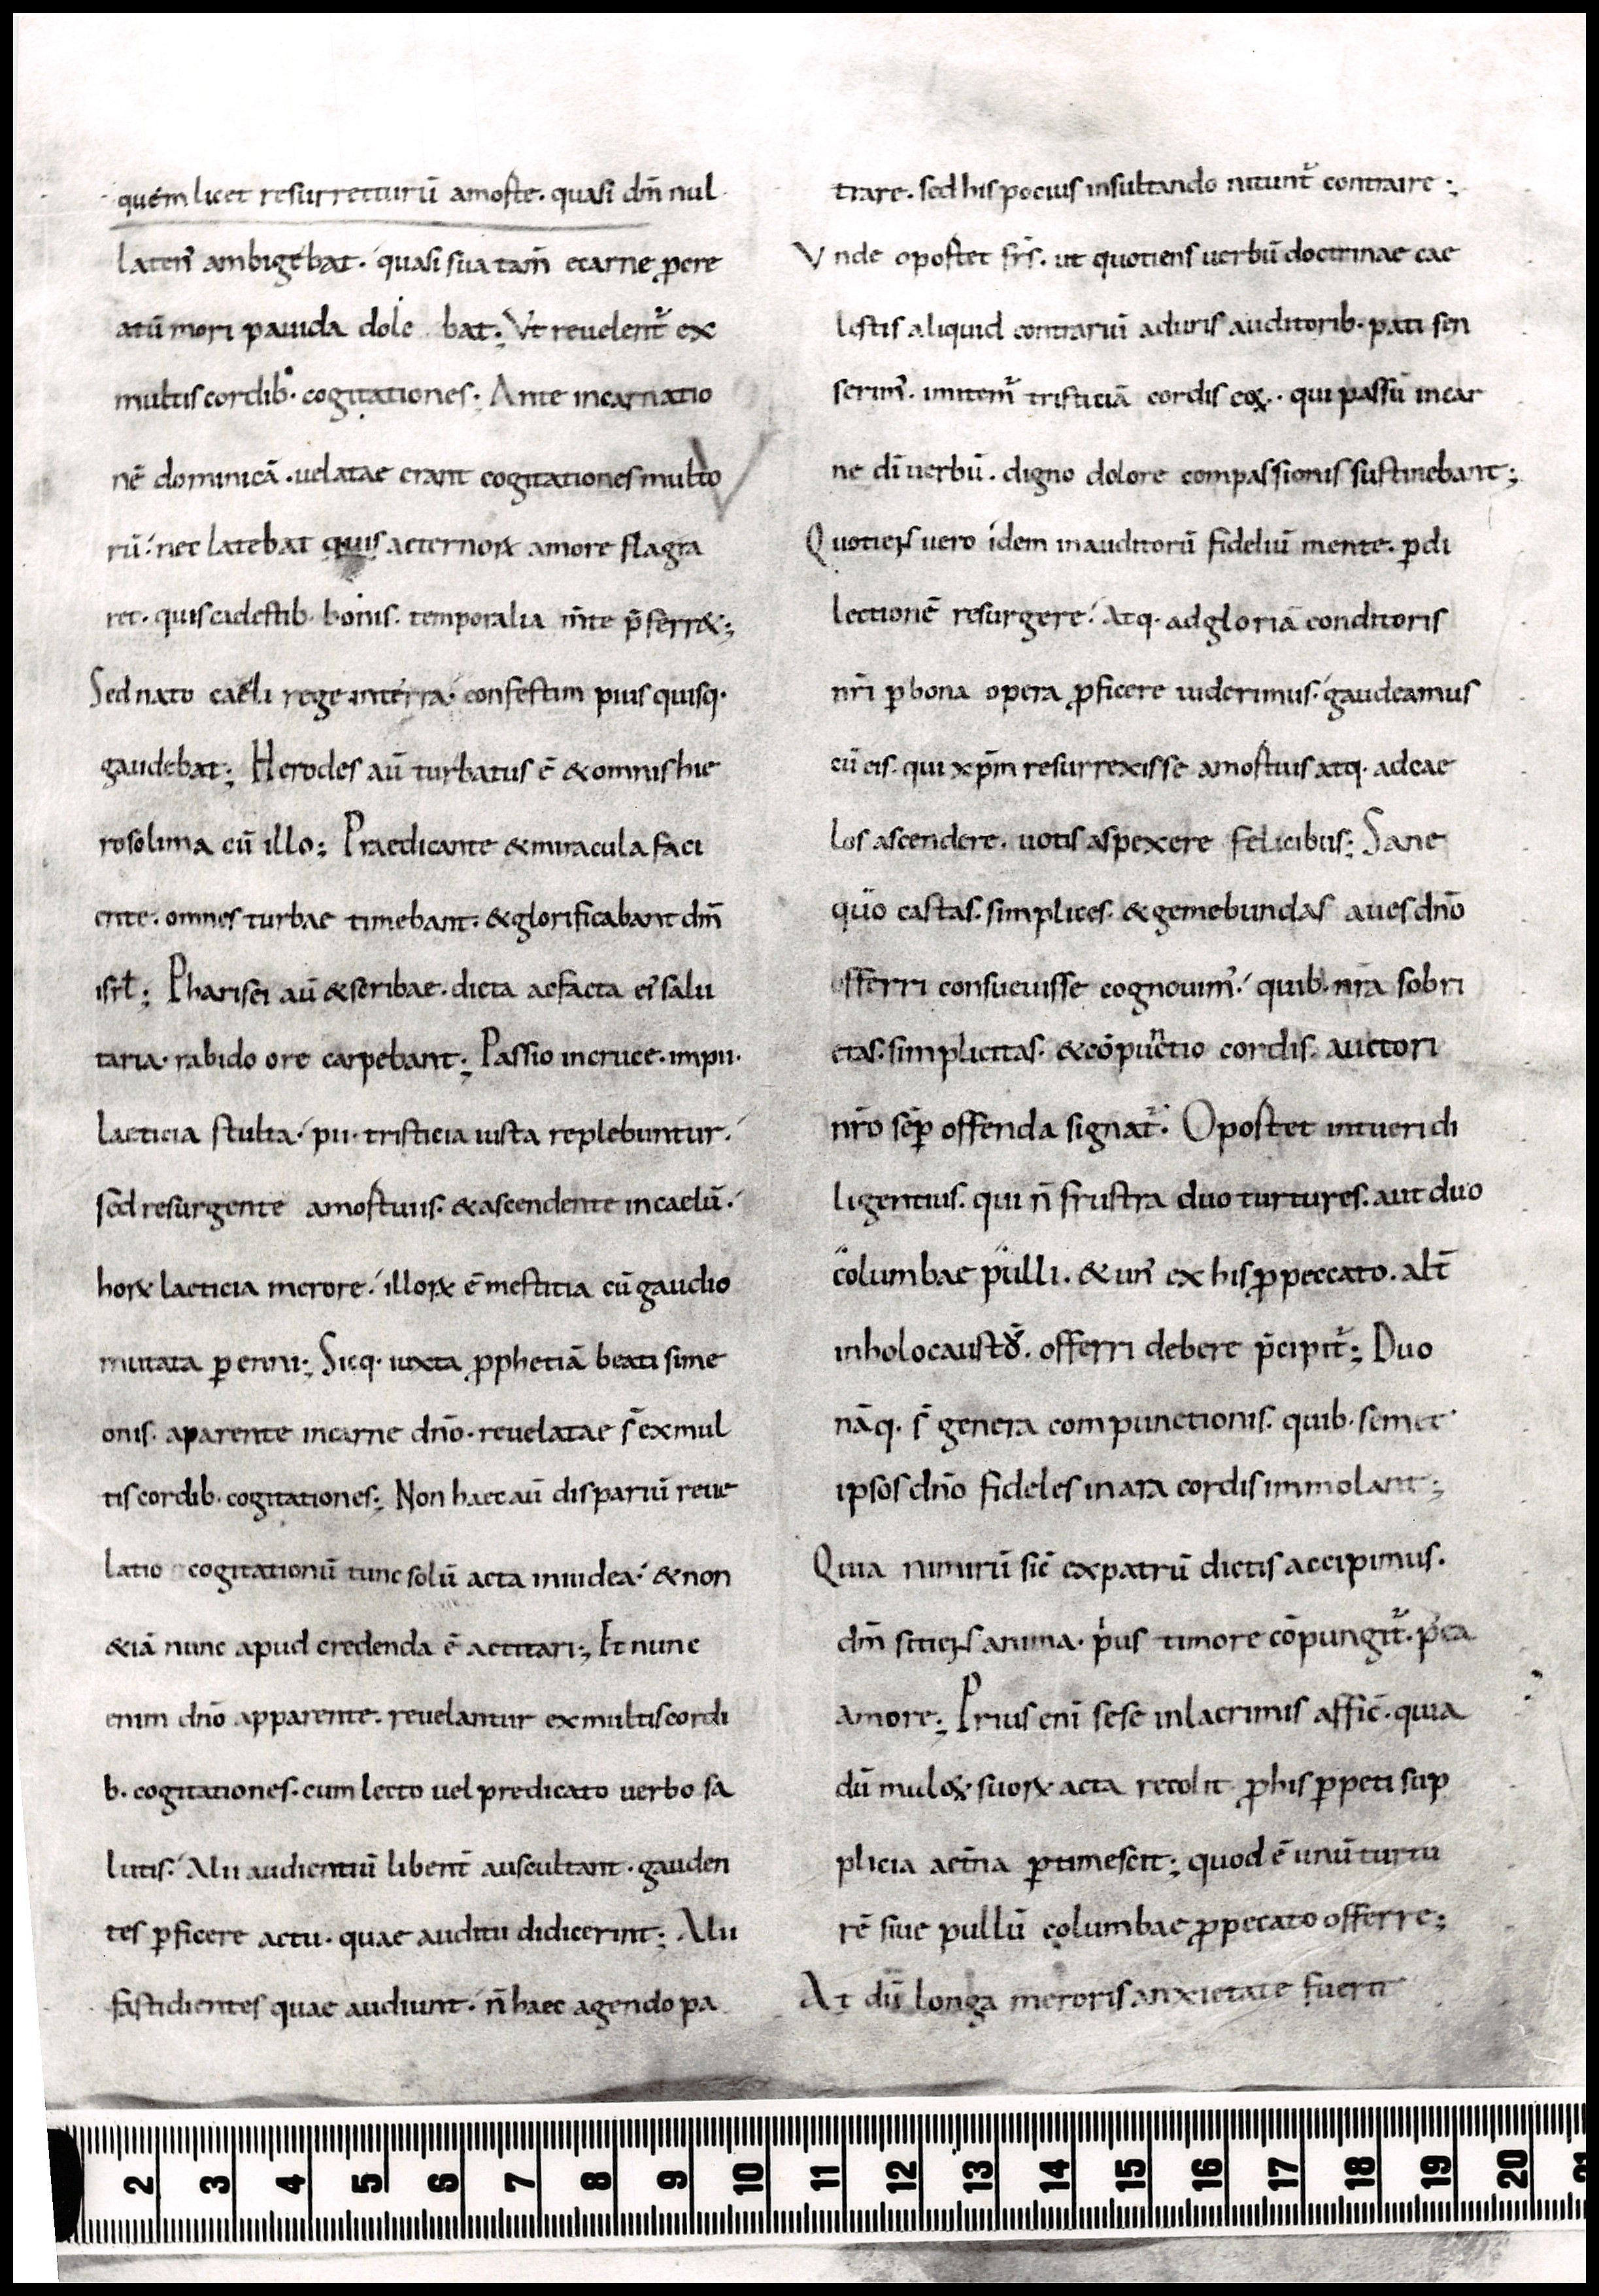 quem licet resurrecturū amorte. quasi dm̄ nul
laten᾽ ambigebat. quasi sua tam̄ ecarne ꝓcre
atū mori pauida dole bat; Vt reuelent᷑ ex
multis cordib᾽. cogitationes; Ante incarnatio
nē dominicā. uelatae erant cogitationes multo
rū. nec latebat quis aeternoꝝ amore flagra
ret. quis caelestib. bonis. temporalia m̄te p̄ferr&;
Sed nato caeli rege interra. confestim pius quisq.
gaudebat; Herodes aū turbatus ē & omnis hie
rosolima cū illo; Praedicante & miracula faci
ente. omnes turbae timebant. & glorificabant dm̄
isrł; Pharisei aū & scribae. dicta acfacta ei᾽ salu
taria. rabido ore carpebant; Passio incruce. impii.
laeticia stulta. pii. tristicia iusta replebuntur.
sed resurgente amortuis. & ascendente incaelū.
hoꝝ laeticia merore. illoꝝ ē mestitia cū gaudio
mutata ꝑenni; Sicq. iuxta ꝓphetiā beati sime
onis. aparente incarne dn̄o. reuelatae s̄ exmul
tis cordib. cogitationes; Non haec aū dispariū reue
latio cogitationū tunc solū acta iniudea. & non
&iā nunc apud credenda ē actitari; Et nunc
enim dn̄o apparente. reuelantur exmultis cordi
b. cogitationes. cum lecto uel predicato uerbo sa
lutis. Alii audientiū liben̄t auscultant. gauden
tes ꝑficere actu. quae auditu didicerint; Alii
fastidientes quae audiunt. n̄ haec agendo pa
trare. sed his pocius insultando nitunt᷑ contraire;
Vnde oportet fr̄s. ut quotiens uerbū doctrinae cae
lestis aliquid contrariū aduris auditorib. pati sen
serim᾽. imitem᷑ tristiciā cordis eoꝝ. qui passū incar
ne dī uerbū. digno dolore compassionis sustinebant;
Quotiens uero idem inauditorū fidelium mente. ꝑdi
lectionē resurgere. Atq. adgloriā conditoris
nr̄i ꝑ bona opera ꝓficere uiderimus. gaudeamus
cū eis. qui xp̄m resurrexisse amortuis atq. adcae
los ascendere. uotis aspexere felicibus; Sane
quo castas. simplices. & gemebundas aues dn̄o
offerri consueuisse cognouim᾽. quib. nr̄a sobri
etas. simplicitas. & cōpunctio cordis. auctori
nr̄o sēp offerenda signat᷑. Oportet intueri di
ligentius. qui n̄ frustra duo turtures. aut duo
columbae pulli. & un᾽ ex his ꝓ peccato. alt̄
inholocaustū. offerri debere p̄cipit᷑; Duo
nāq. s̄ genera compunctionis. quib. semet
ipsos dn̄o fideles in ara cordis immolant;
Quia nimirū sic̄ expatrū dictis accipimus.
dm̄ sitiens anima. prius timore cōpungit᷑. p᾽ea
amore; Prius eni sese inlacrimis affic̄. quia
dū maloꝝ suoꝝ acta recolit ꝓ his ꝑpeti sup
plicia aet̄na ꝑtimescit; quod ē unū turtu
rē siue pullū columbae ꝓ pecato offerre;
At dū longa meroris anxietate fuerit